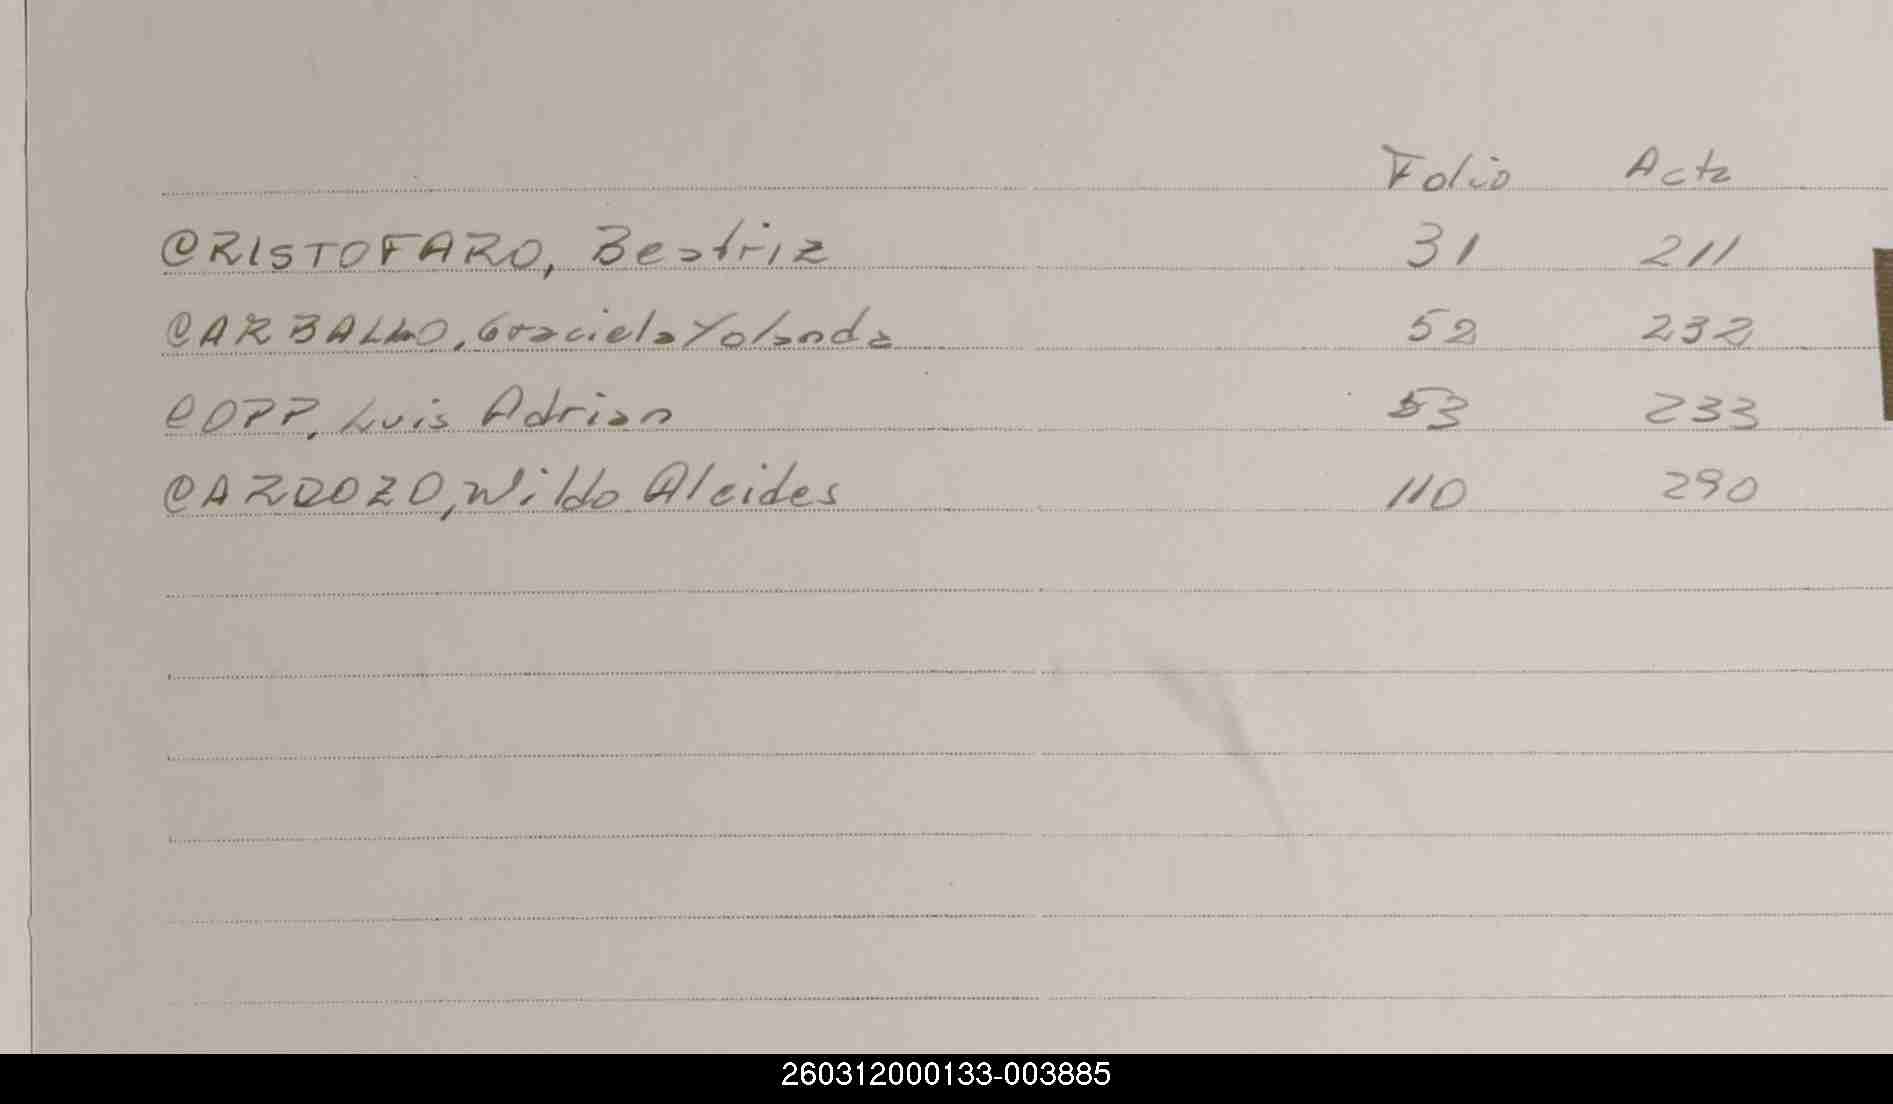 Folio Acta
CRISTOFARO, Beatriz 31 211
CARBALLO, Graciela Yolanda 52 232
COPP, Luis Adrian 53 233
CARDOZO, Wildo Alcides 110 290
260312000133-003885